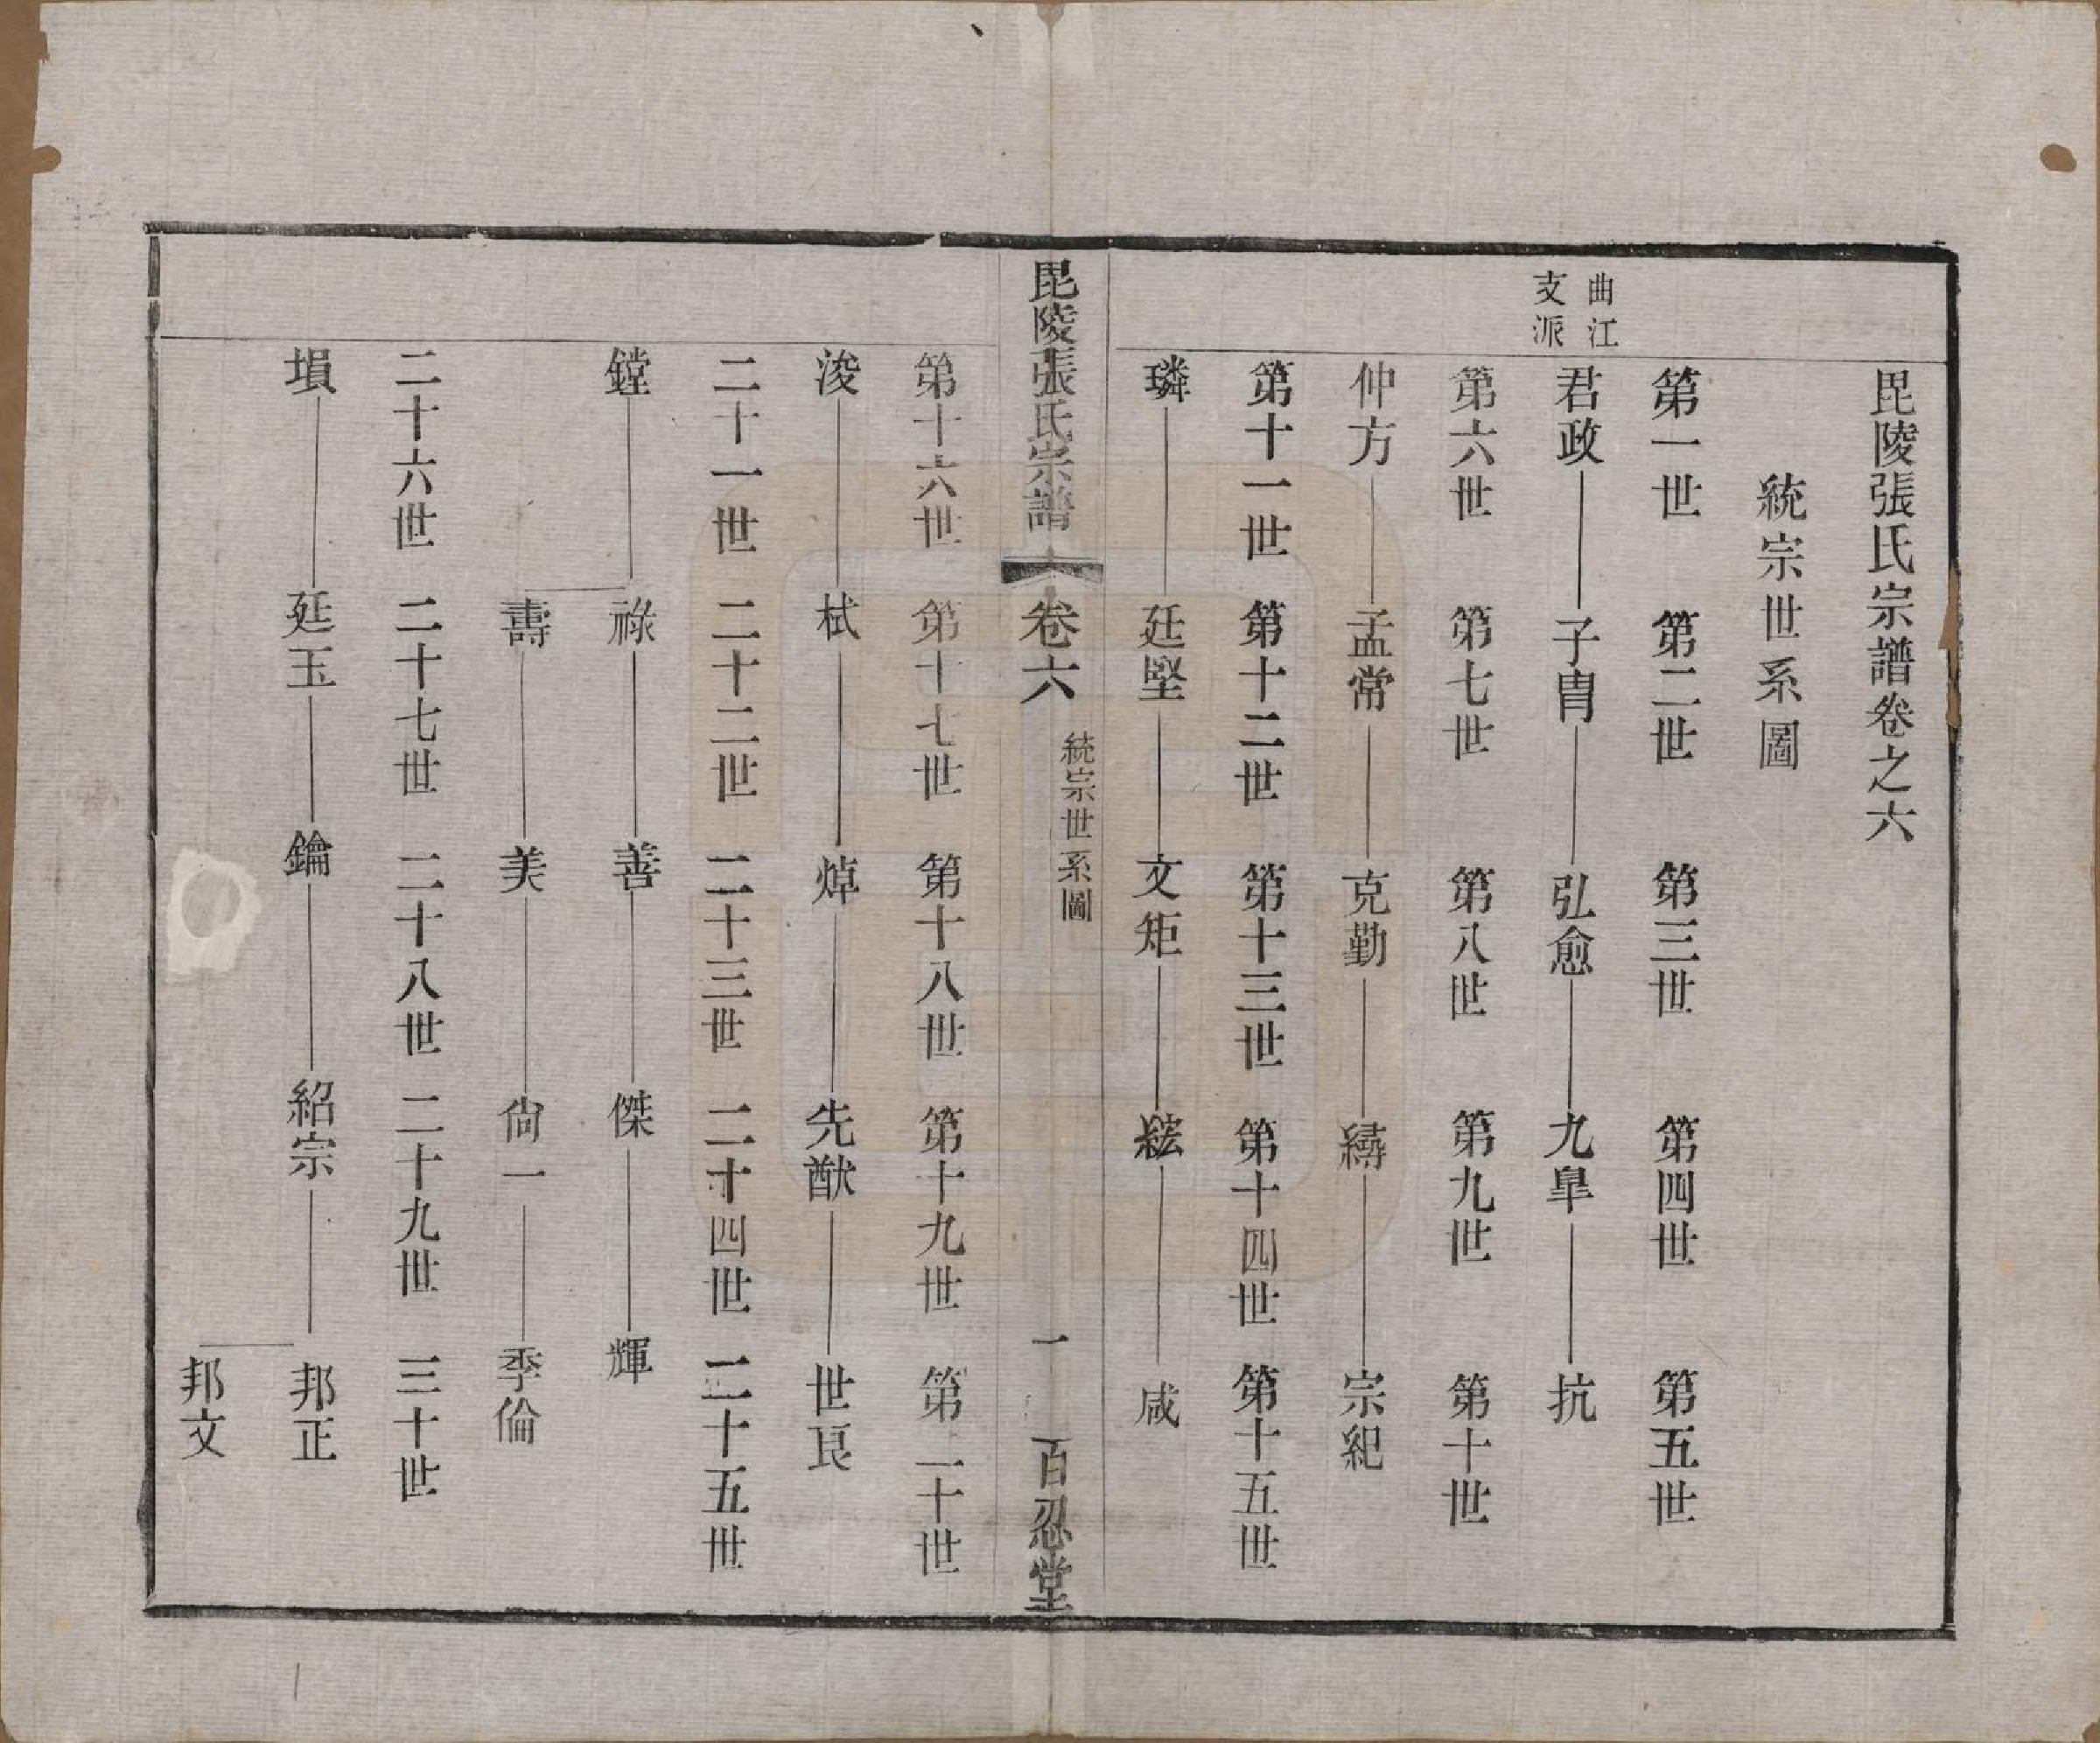 毘陵張氏宗譜卷之六
統宗世系圖
曲江
支派
第一世 第二世 第三世 第四世 第五世
君政 子胄 弘愈 九臯 抗
第六世 第七世 第八世 第九世 第十世
仲方 孟常 克勤 縳 宗紀
第十一世 第十二世 第十三世 第十四世 第十五世
璘 廷堅 文矩 紘 咸
毘陵張氏宗譜 卷六 統宗世系圖 一 百忍堂
第十六世 第十七世 第十八世 第十九世 第二十世
浚 栻 焯 先猷 世良
二十一世 二十二世 二十三世 二十四世 二十五世
鏜 祿 善 傑 輝
壽 美 尙一 季倫
二十六世 二十七世 二十八世 二十九世 三十世
塤 延玉 鑰 紹宗 邦正
邦文